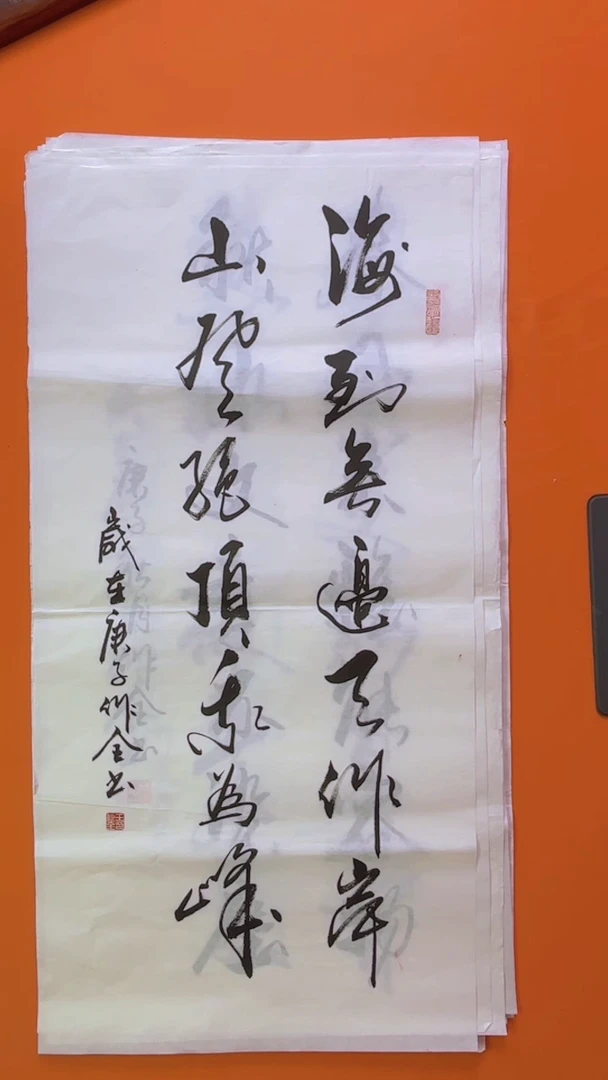 海到無邊天作岸
山登絕頂我為峰
歲在庚子作全書